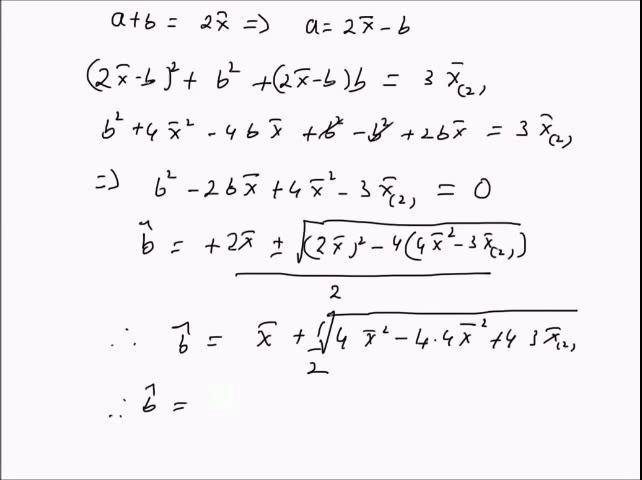 a+b = 2x̄ => a = 2x̄ - b
(2x̄-b)² + b² + (2x̄-b)b = 3 x̄₍₂₎
b² + 4x̄² - 4bx̄ + b² - b² + 2bx̄ = 3 x̄₍₂₎
=> b² - 2bx̄ + 4x̄² - 3x̄₍₂₎ = 0
b̂ = +2x̄ ± √((2x̄)² - 4(4x̄² - 3x̄₍₂₎)) / 2
∴ b̂ = x̄ + 1/2 √(4 x̄² - 4.4x̄² + 4 3x̄₍₂₎)
∴ b̂ =